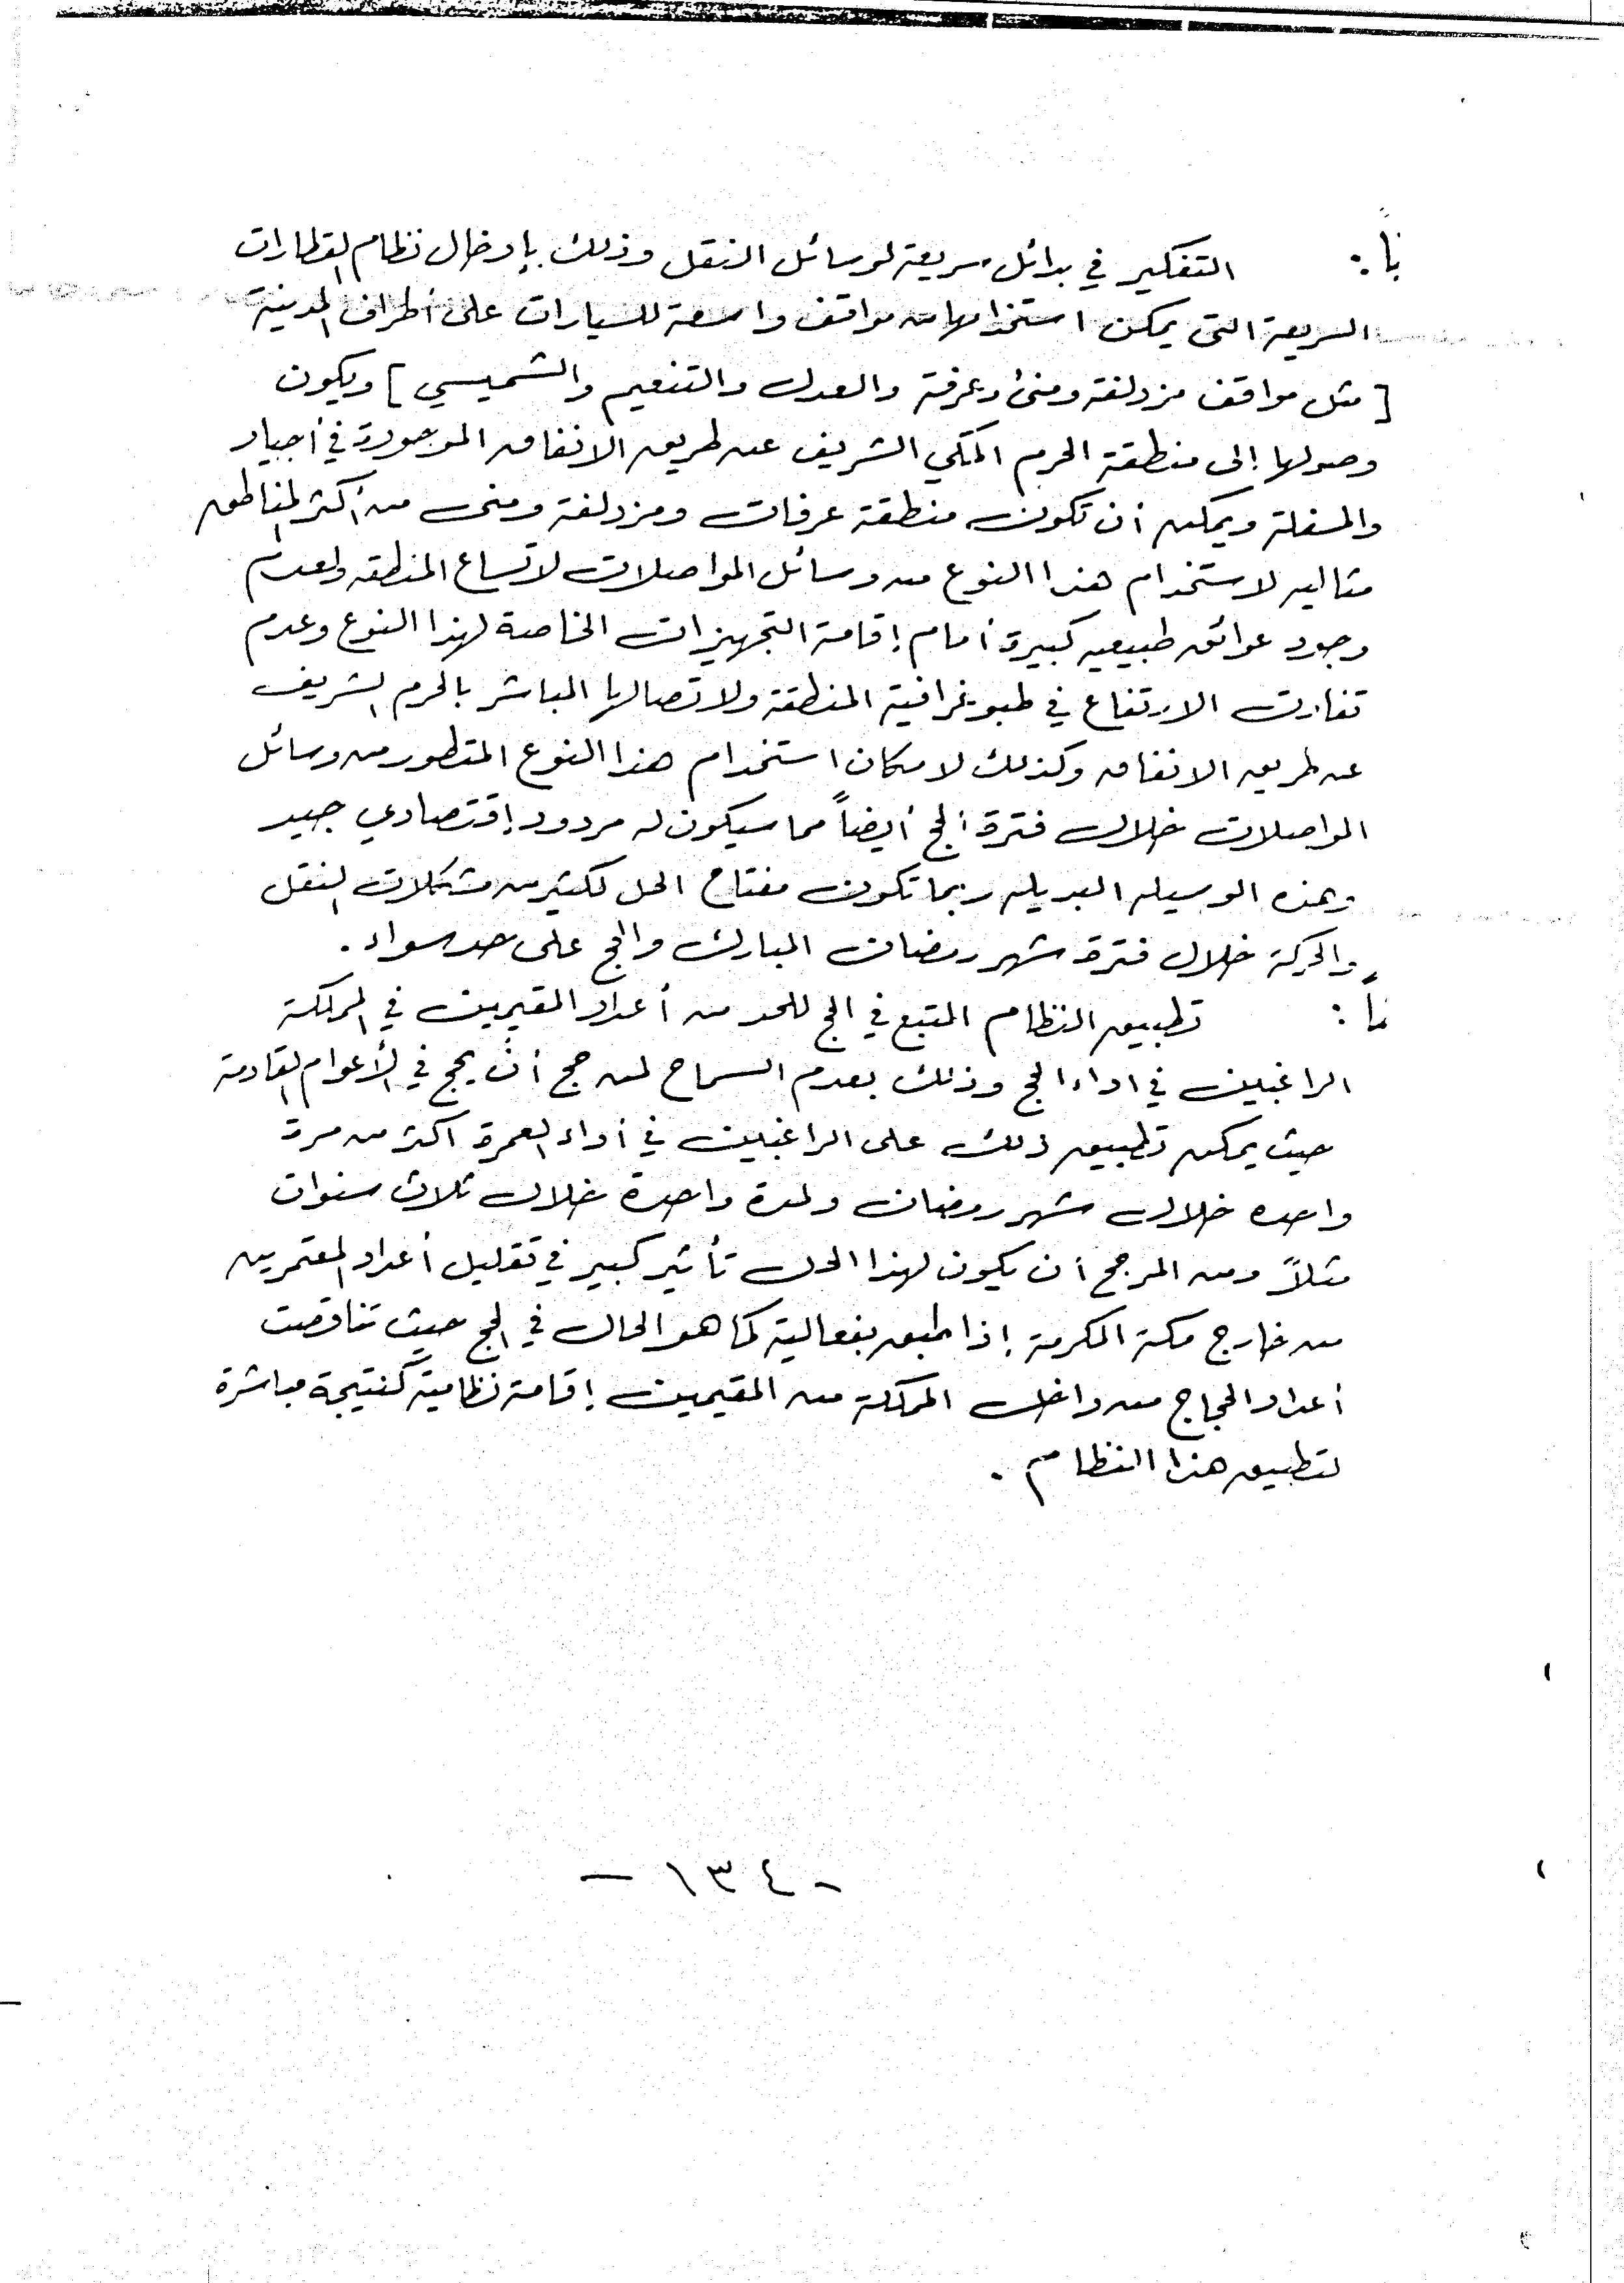 نياً : التفكير في بدائل سريعة لوسائل النقل وذلك بإدخال نظام القطارات
السريعة التى يمكن استخدامها من مواقف واسعة للسيارات على أطراف المدينة
[ مثل مواقف مزدلفة ومنى وعرفة والعدل والتنعيم والشميسي ] ويكون
وصولها إلى منطقة الحرم المكي الشريف عن طريق الانفاق الموجودة في أجياد
والمسفلة ويمكن أن تكون منطقة عرفات ومزدلفة ومنى من أكثر المناطق
مثاليه لاستخدام هذا النوع من وسائل المواصلات لاتساع المنطقه ولعدم
وجود عوائق طبيعيه كبيرة أمام إقامة التجهيزات الخاصة لهذا النوع وعدم
تفاوت الارتفاع في طبوغرافية المنطقة ولاتصالها المباشر بالحرم الشريف
عن طريق الانفاق وكذلك لامكان استخدام هذا النوع المتطور من وسائل
المواصلات خلال فترة الحج أيضاً مما سيكون له مردود إقتصادي جيد
وهذه الوسيله البديله ربما تكون مفتاح الحل لكثير من مشكلات النقل
والحركة خلال فترة شهر رمضان المبارك والحج على حد سواء .
: تطبيق النظام المتبع في الحج للحد من أعداد المقيمين في المملكة
الراغبين في اداء الحج وذلك بعدم السماح لمن حج أن يحج في الأعوام القادمة
حيث يمكن تطبيق ذلك على الراغبين في أداء العمرة اكثر من مرة
واحده خلال شهر رمضان ولمدة واحدة خلال ثلاث سنوات
مثلاً ومن المرجح أن يكون لهذا الحل تأثير كبير في تقليل أعداد المعتمرين
من خارج مكة المكرمة إذا طبق بفعالية كما هو الحال في الحج حيث تناقصت
أعداد الحجاج من داخل المملكة من المقيمين إقامة نظامية كنتيجة مباشرة
لتطبيق هذا النظام .
- ١٣٤ -